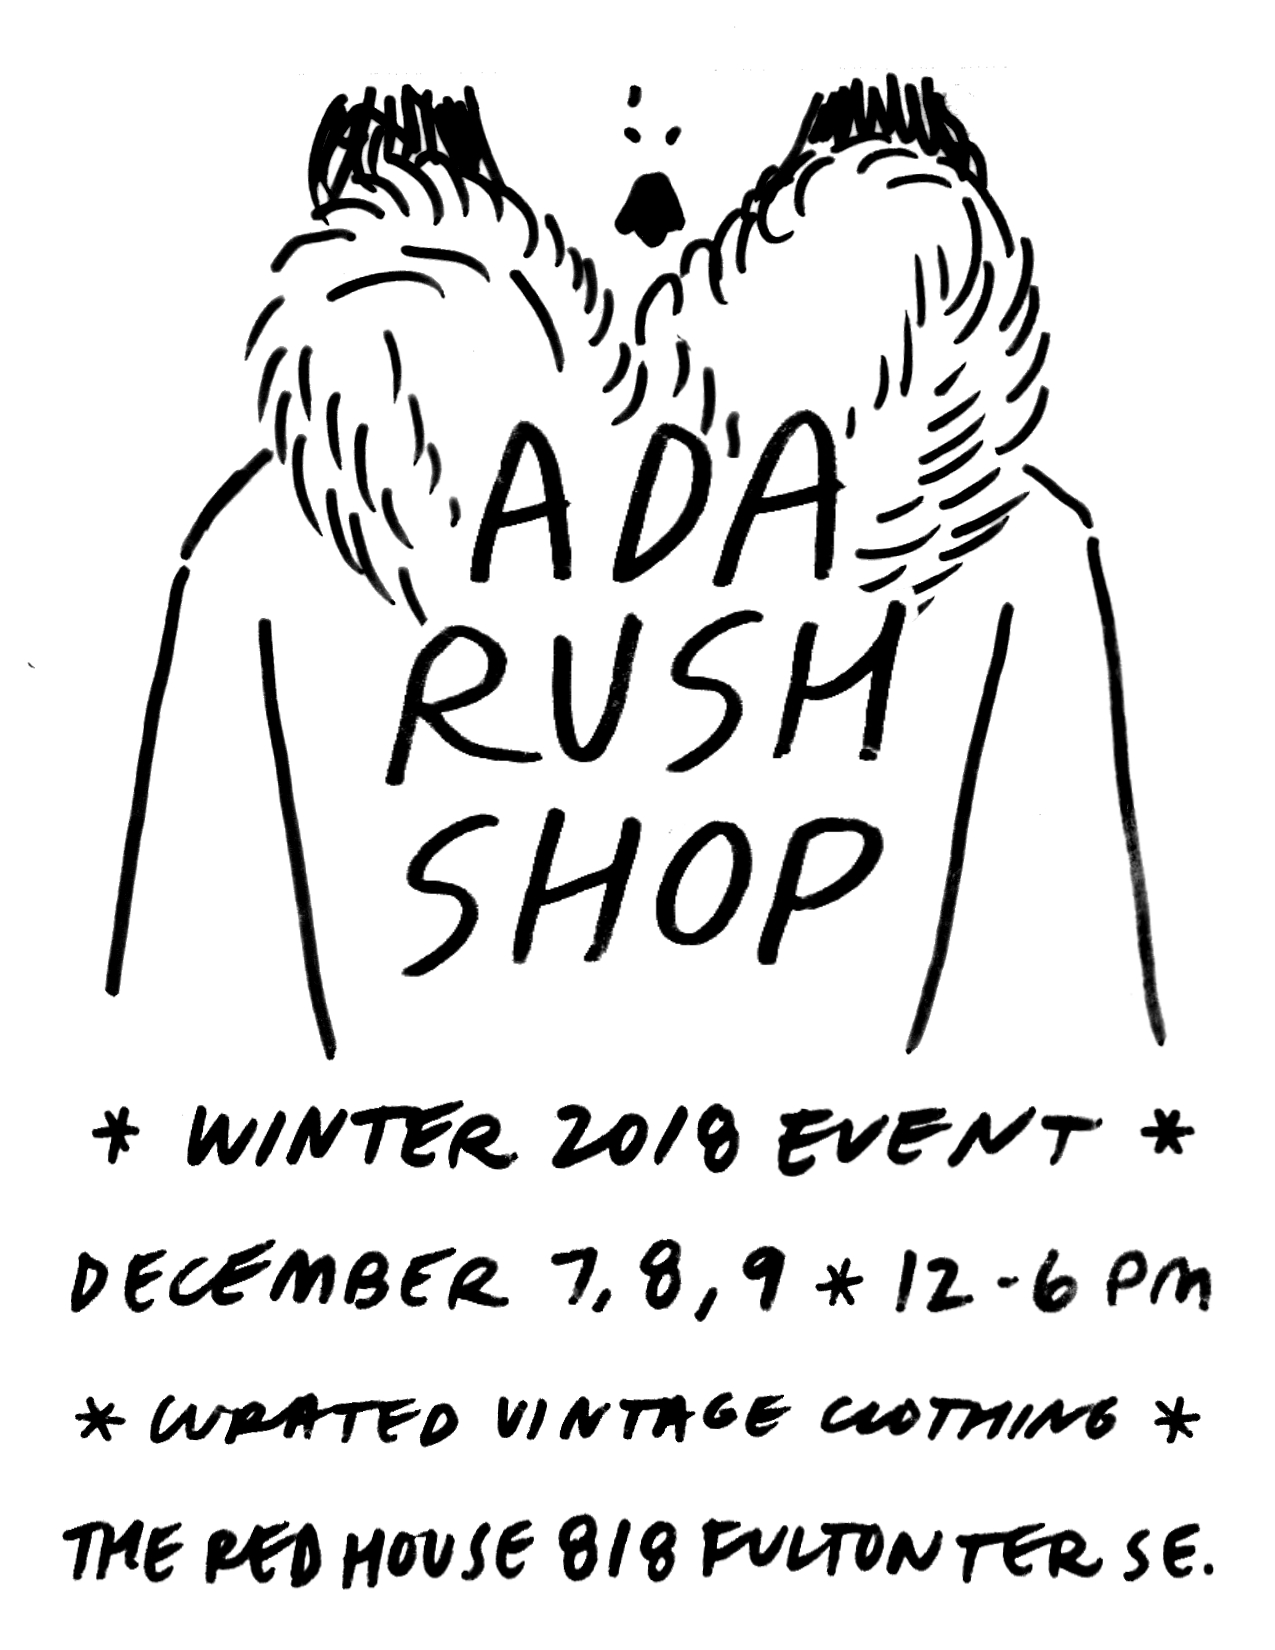 ADA
RUSH
SHOP
* WINTER 2018 EVENT *
DECEMBER 7, 8, 9 * 12-6 PM
* CURATED VINTAGE CLOTHING *
THE RED HOUSE 818 FULTON TER SE.